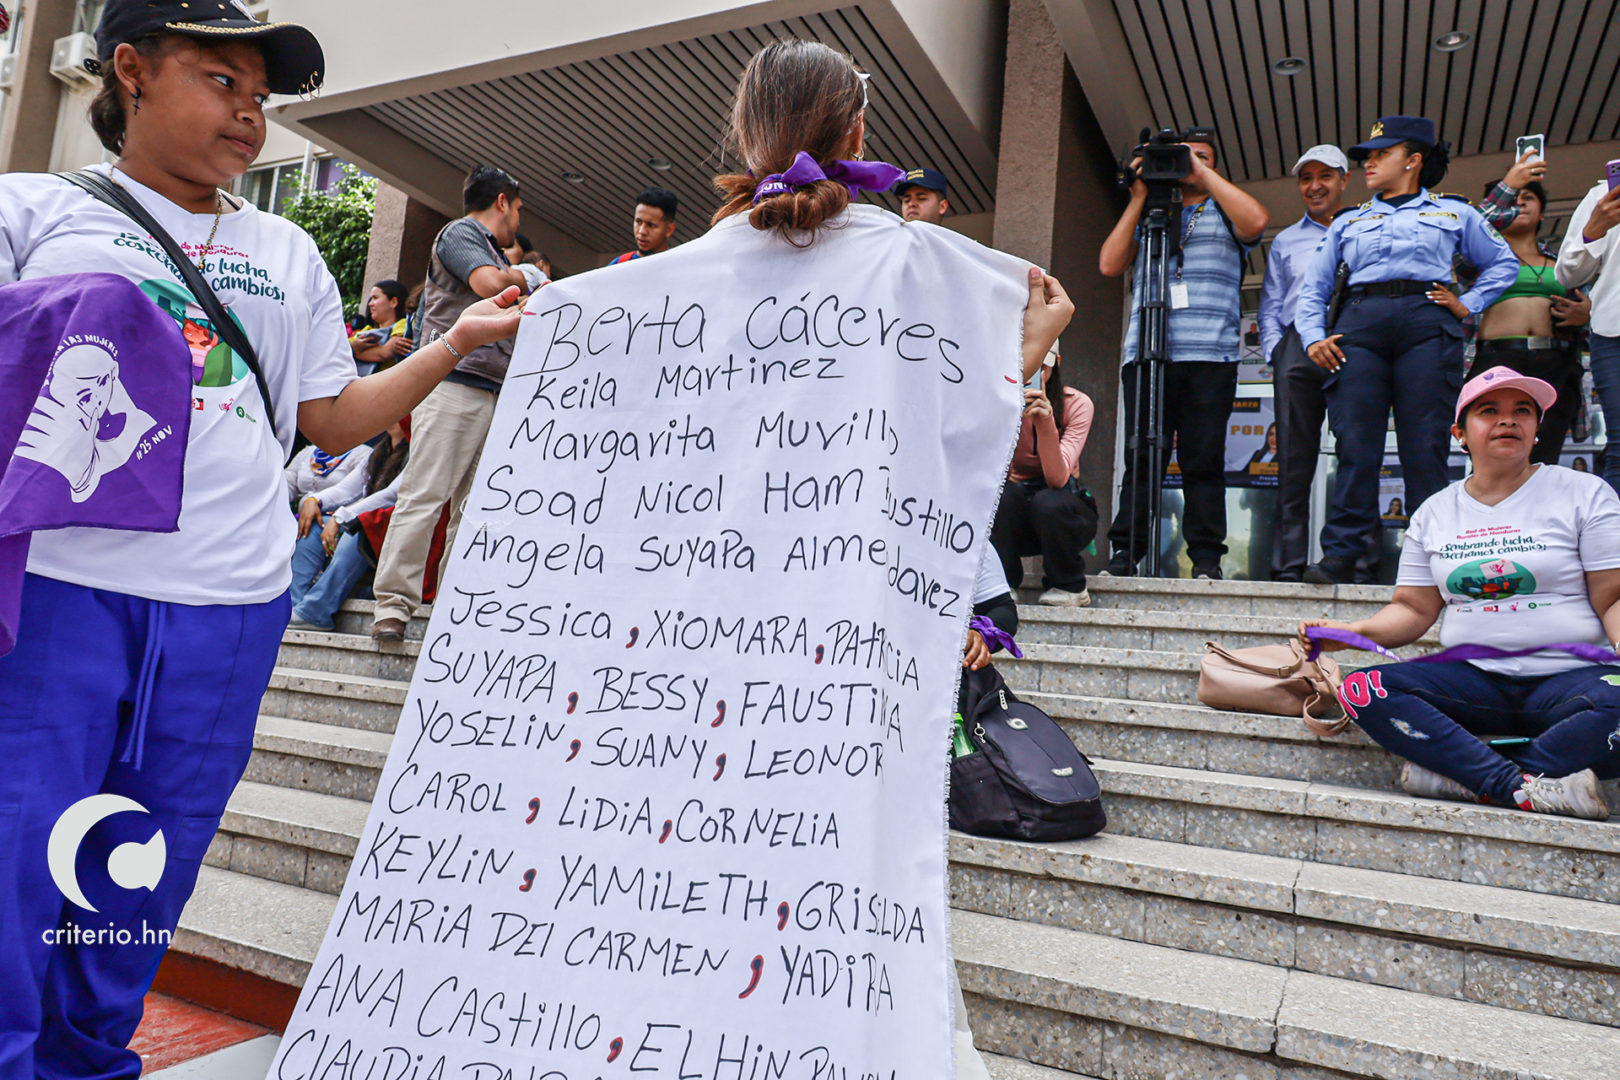 Berta Cáceres
Keila Martinez
Margarita Muvillo
Soad Nicol Ham Bustillo
Angela Suyapa Almendavez
Jessica, XIOMARA, PATRICIA
SUYAPA, BESSY, FAUSTINA
YOSELIN, SUANY, LEONOR
CAROL, LIDIA, CORNELIA
KEYLIN, YAMILETH, GRISELDA
MARIA DEL CARMEN, YADIRA
ANA CAStillo, ELHIN
CLAUDIA
de Mujeres
de Honduras
lucha,
cambios!
LAS MUJERES
#25 NOV
Red de Mujeres
Rurales de Honduras
¡Sembrando lucha,
cosechamos cambios!
POR
criterio.hn